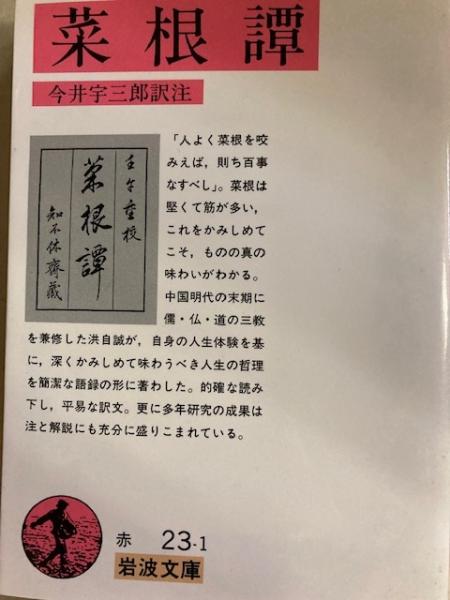 菜根譚
今井宇三郎訳注
壬午重校
菜根譚
知不休齋藏
「人よく菜根を咬
みえば，則ち百事
なすべし」。菜根は
堅くて筋が多い，
これをかみしめて
こそ，ものの真の
味わいがわかる。
中国明代の末期に
儒・仏・道の三教
を兼修した洪自誠が，自身の人生体験を基
に，深くかみしめて味わうべき人生の哲理
を簡潔な語録の形に著わした。的確な読み
下し，平易な訳文。更に多年研究の成果は
注と解説にも充分に盛りこまれている。
赤 23-1
岩波文庫